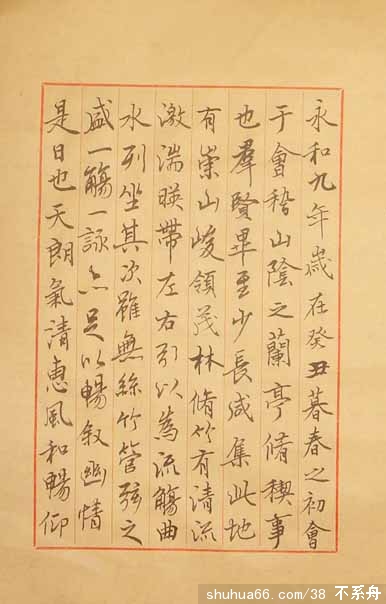 永和九年歲在癸丑暮春之初會
于會稽山陰之蘭亭脩稧事
也羣賢畢至少長咸集此地
有崇山峻領茂林脩竹有清流
激湍暎帶左右引以為流觴曲
水列坐其次雖無絲竹管弦之
盛一觴一詠亦足以暢敘幽情
是日也天朗氣清惠風和暢仰
shuhua66.com/38 不系舟